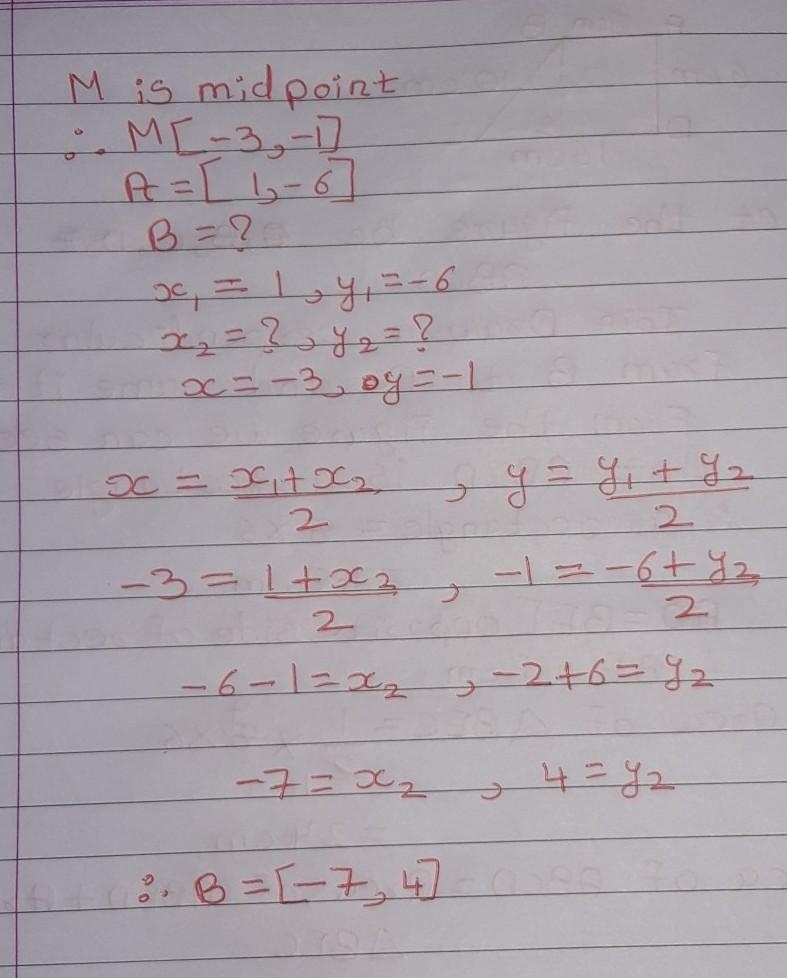 M is midpoint
∴ M[-3,-1]
A = [1,-6]
B = ?
x₁ = 1, y₁ = -6
x₂ = ?, y₂ = ?
x = -3, y = -1
x = (x₁ + x₂)/2, y = (y₁ + y₂)/2
-3 = (1 + x₂)/2, -1 = (-6 + y₂)/2
-6 - 1 = x₂, -2 + 6 = y₂
-7 = x₂, 4 = y₂
∴ B = [-7, 4]